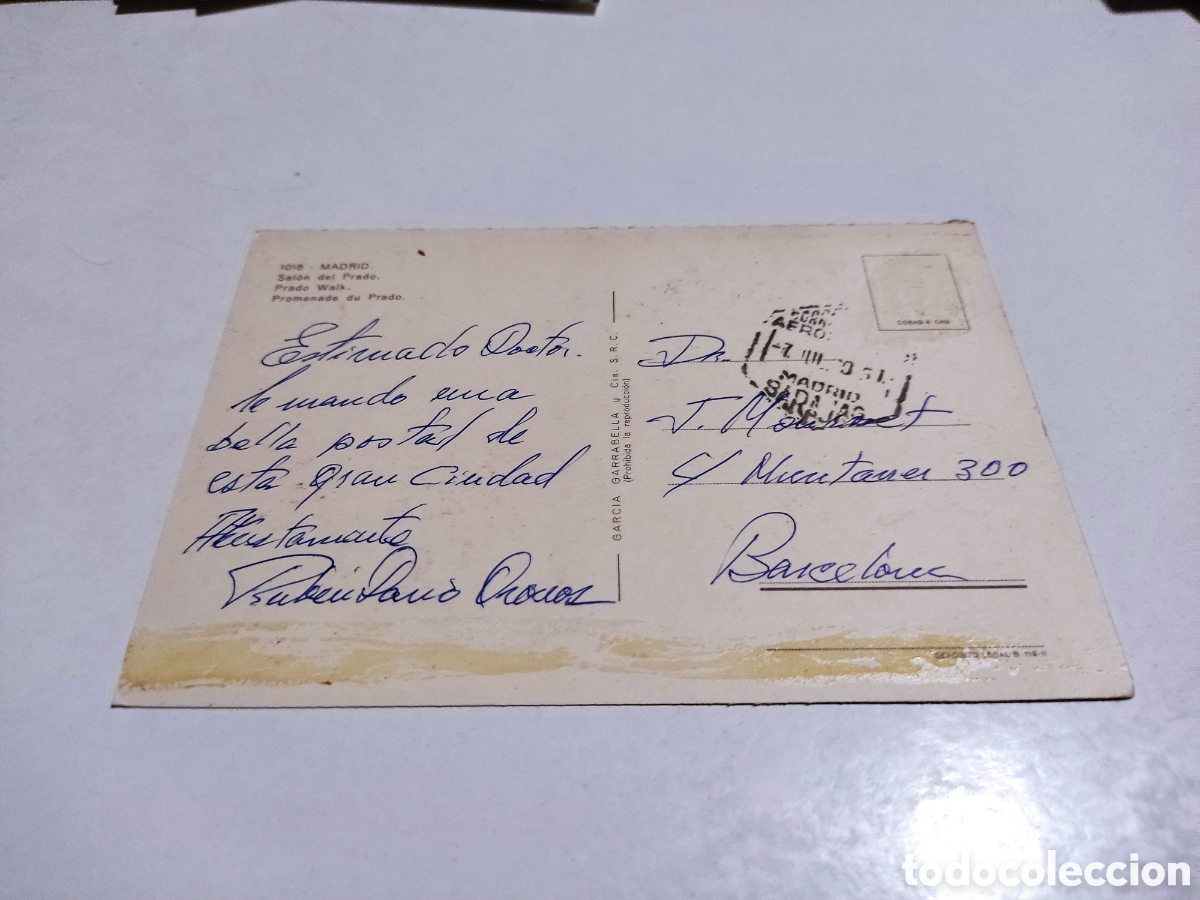 1018 - MADRID.
Salón del Prado.
Prado Walk.
Promenade du Prado.
Estimado Doctor.
le mando una
bella postal de
esta gran Ciudad
Atentamente
Rubén Dario
GARCIA GARRABELLA y Cia. S. R. C.
(Prohibida la reproducción)
AERO
MADRID
BARAJAS
Dr.
J.
C/ Muntaner 300
Barcelona
DEPOSITO LEGAL B. 119-II
todocoleccion